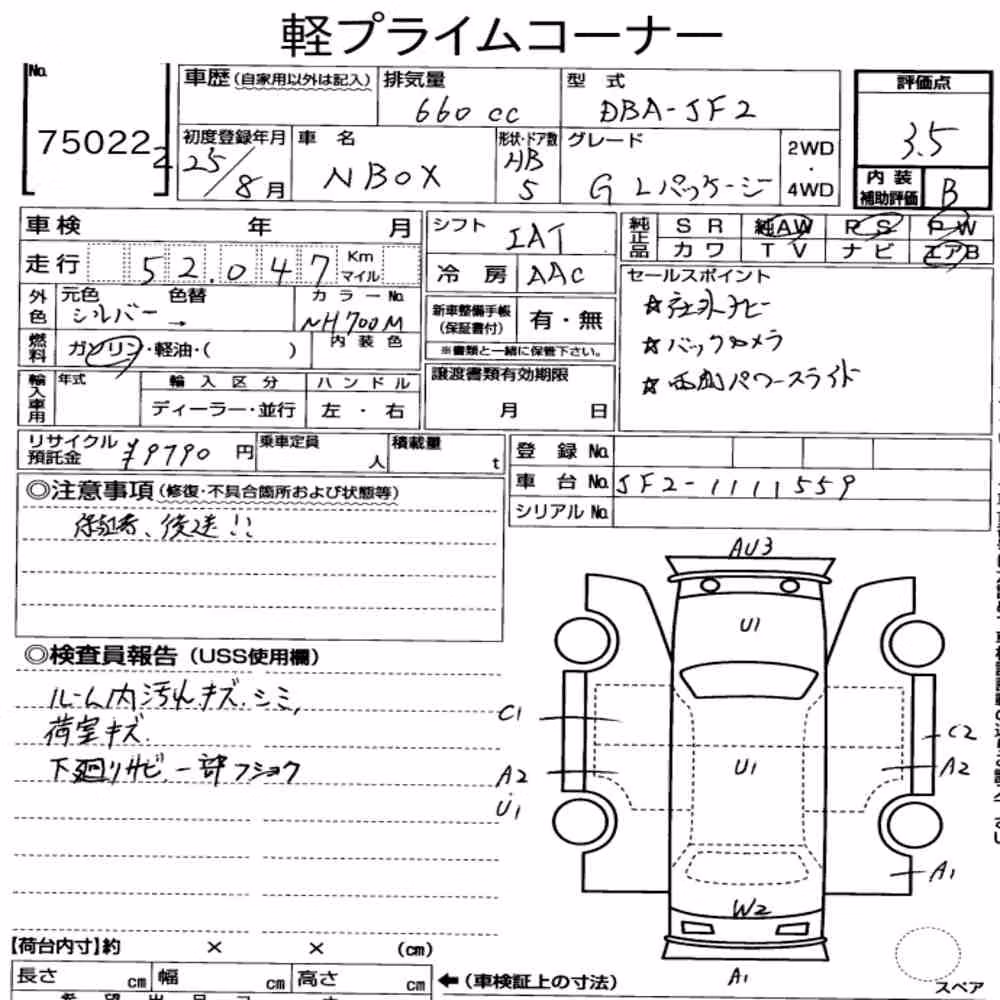 軽プライムコーナー
No.
75022
2
車歴(自家用以外は記入)
排気量
660 cc
型 式
DBA-JF2
評価点
3.5
初度登録年月
25/8月
車 名
N BOX
形状・ドア数
HB
5
グレード
G Lパッケージ
2WD
・
4WD
内 装
補助評価
B
車検 年 月
シフト
IAT
純正品
SR 純AW PS PW
カワ TV ナビ エアB
走行 52,047 Km マイル
冷 房 AAC
セールスポイント
☆社外ナビー
☆バックカメラ
☆両側パワースライド
外色
元色 色替
シルバー →
カラーNo.
NH700M
新車整備手帳
(保証書付)
有・無
※書類と一緒に保管下さい。
燃料
ガソリン・軽油・( )
内装色
輸入車用
年式
輸入区分
ディーラー・並行
ハンドル
左・右
譲渡書類有効期限
月 日
リサイクル
預託金
¥9790 円
乗車定員
人
積載量
t
登 録 No.
車 台 No. JF2-1111559
シリアル No.
◎注意事項(修復・不具合箇所および状態等)
保証書、後送!!
◎検査員報告(USS使用欄)
ルーム内汚れキズ.シミ,
荷室キズ.
下廻りサビ、一部フショク
AU3
U1
C1
C2
A2
U1
U1
A2
A1
W2
A1
【荷台内寸】約 × × (cm)
長さ cm 幅 cm 高さ cm
←(車検証上の寸法)
スペア